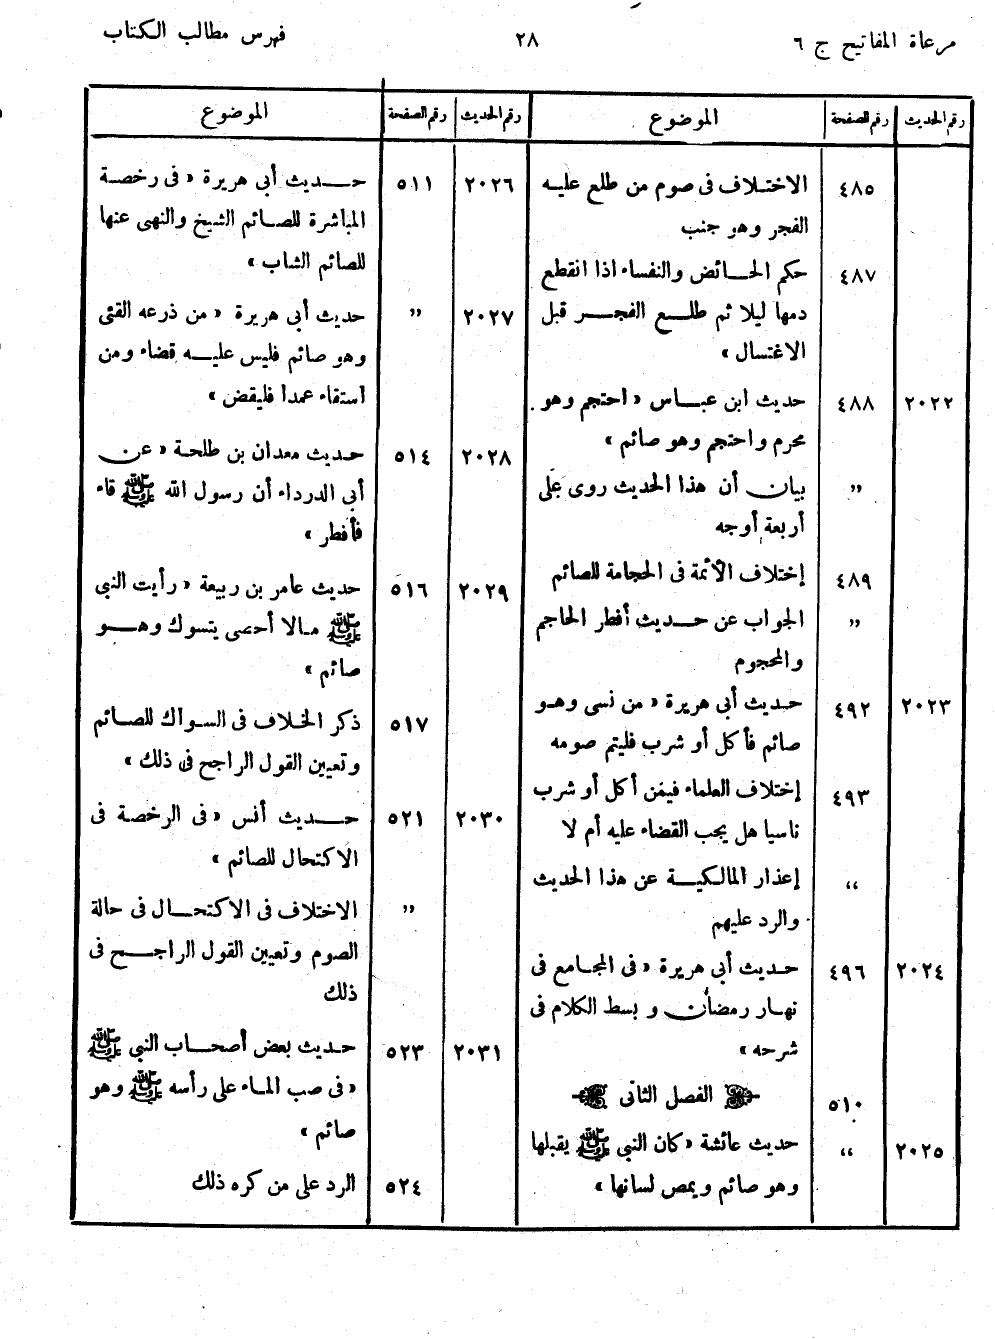 مرعاة المفاتيح ج ٦
٢٨
فهرس مطالب الكتاب
رقم الحديث رقم الصفحة الموضوع
٤٨٥ الاختلاف فى صوم من طلع عليه
الفجر وهو جنب
٤٨٧ حكم الحائض والنفساء اذا انقطع
دمها ليلا ثم طلع الفجر قبل
الاغتسال »
٢٠٢٢ ٤٨٨ حديث ابن عباس « احتجم وهو
محرم واحتجم وهو صائم »
” بيان أن هذا الحديث روى على
أربعة أوجه
٤٨٩ إختلاف الأئمة فى الحجامة للصائم
” الجواب عن حديث أفطر الحاجم
والمحجوم
٢٠٢٣ ٤٩٢ حديث أبى هريرة « من نسى وهو
صائم فأكل أو شرب فليتم صومه
٤٩٣ إختلاف العلماء فيمن أكل أو شرب
ناسيا هل يجب القضاء عليه أم لا
“ إعذار المالكية عن هذا الحديث
والرد عليهم
٢٠٢٤ ٤٩٦ حديث أبى هريرة « فى المجامع فى
نهار رمضان و بسط الكلام فى
شرحه »
٥١٠ الفصل الثانى
٢٠٢٥ “ حديث عائشة « كان النبى ﷺ يقبلها
وهو صائم ويمص لسانها »
رقم الحديث رقم الصفحة الموضوع
٢٠٢٦ ٥١١ حديث أبى هريرة « فى رخصة
المباشرة للصائم الشيخ والنهى عنها
للصائم الشاب »
٢٠٢٧ ” حديث أبى هريرة « من ذرعه القئى
وهو صائم فليس عليه قضاء ومن
أستقاء عمدا فليقض »
٢٠٢٨ ٥١٤ حديث معدان بن طلحة « عن
أبى الدرداء أن رسول الله ﷺ قاء
فأفطر »
٢٠٢٩ ٥١٦ حديث عامر بن ربيعة « رأيت النبى
ﷺ مالا أحصى يتسوك وهو
صائم »
٥١٧ ذكر الخلاف فى السواك للصائم
وتعيين القول الراجح فى ذلك »
٢٠٣٠ ٥٢١ حديث أنس « فى الرخصة فى
الاكتحال للصائم »
” الاختلاف فى الاكتحال فى حالة
الصوم وتعيين القول الراجح فى
ذلك
٢٠٣١ ٥٢٣ حديث بعض أصحاب النبى ﷺ
« فى صب الماء على رأسه ﷺ وهو
صائم »
٥٢٤ الرد على من كره ذلك